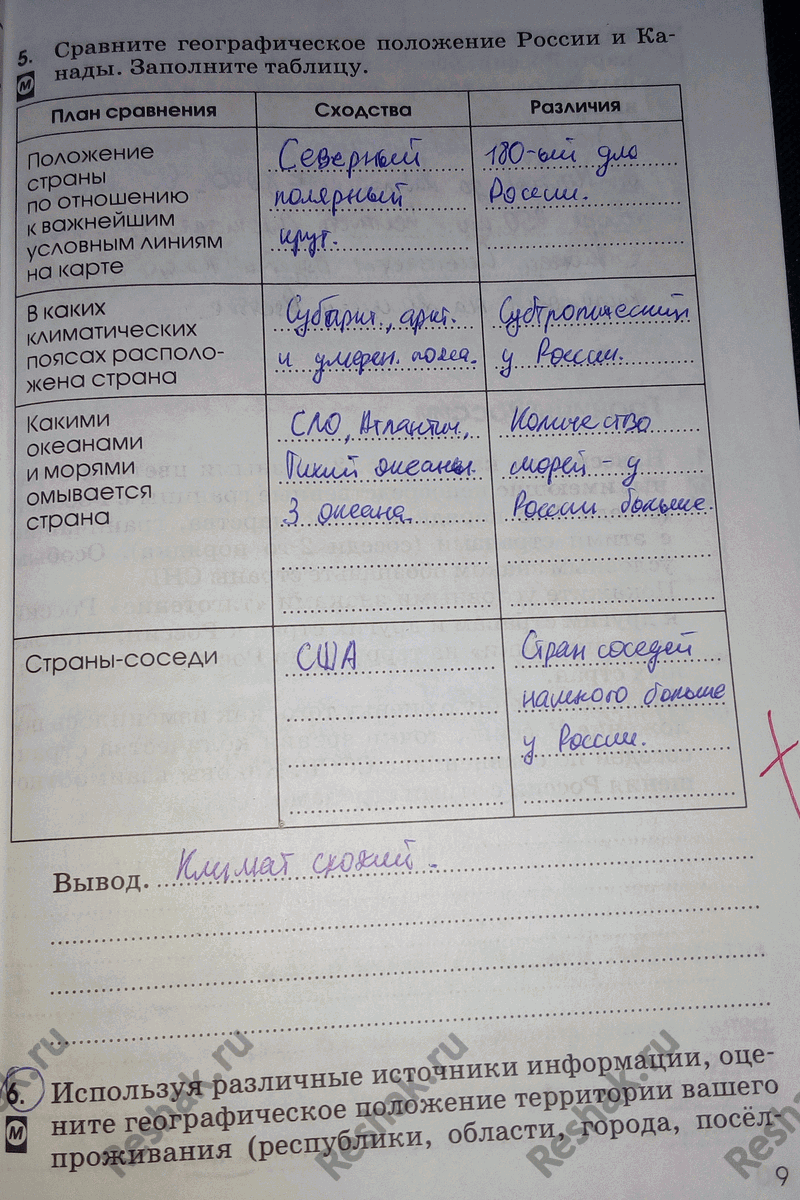 5. Сравните географическое положение России и Ка-
нады. Заполните таблицу.
М
План сравнения
Сходства
Различия
Положение
страны
по отношению
к важнейшим
условным линиям
на карте
Северный
полярный
круг.
180-ый для
России.
В каких
климатических
поясах располо-
жена страна
Субаркт., аркт.
и умерен. пояса.
Субтропический
у России.
Какими
океанами
и морями
омывается
страна
СЛО, Атлантич.,
Тихий океаны.
3 океана.
Количество
морей - у
России больше.
Страны-соседи
США
Стран соседей
намного больше
у России.
Вывод. Климат схожий.
6. Используя различные источники информации, оце-
М
ните географическое положение территории вашего
проживания (республики, области, города, посёл-
Reshak.ru
Reshak.ru
Reshak.ru
Reshak.ru
9